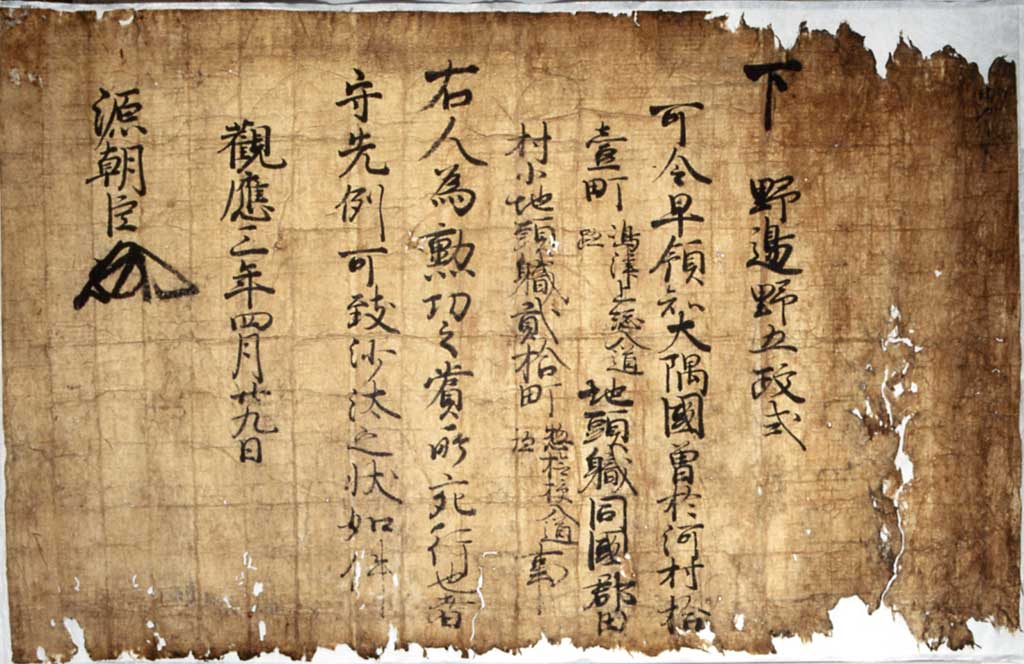 下　野邊野五政式
可令早領知大隅國曽於河村拾
壹町 嶋津上総入道跡 地頭職同國郡田
村小地頭職貳拾町 入道跡 事
右人為勲功之賞所宛行也者
守先例可致沙汰之状如件
觀應三年四月廿九日
源朝臣